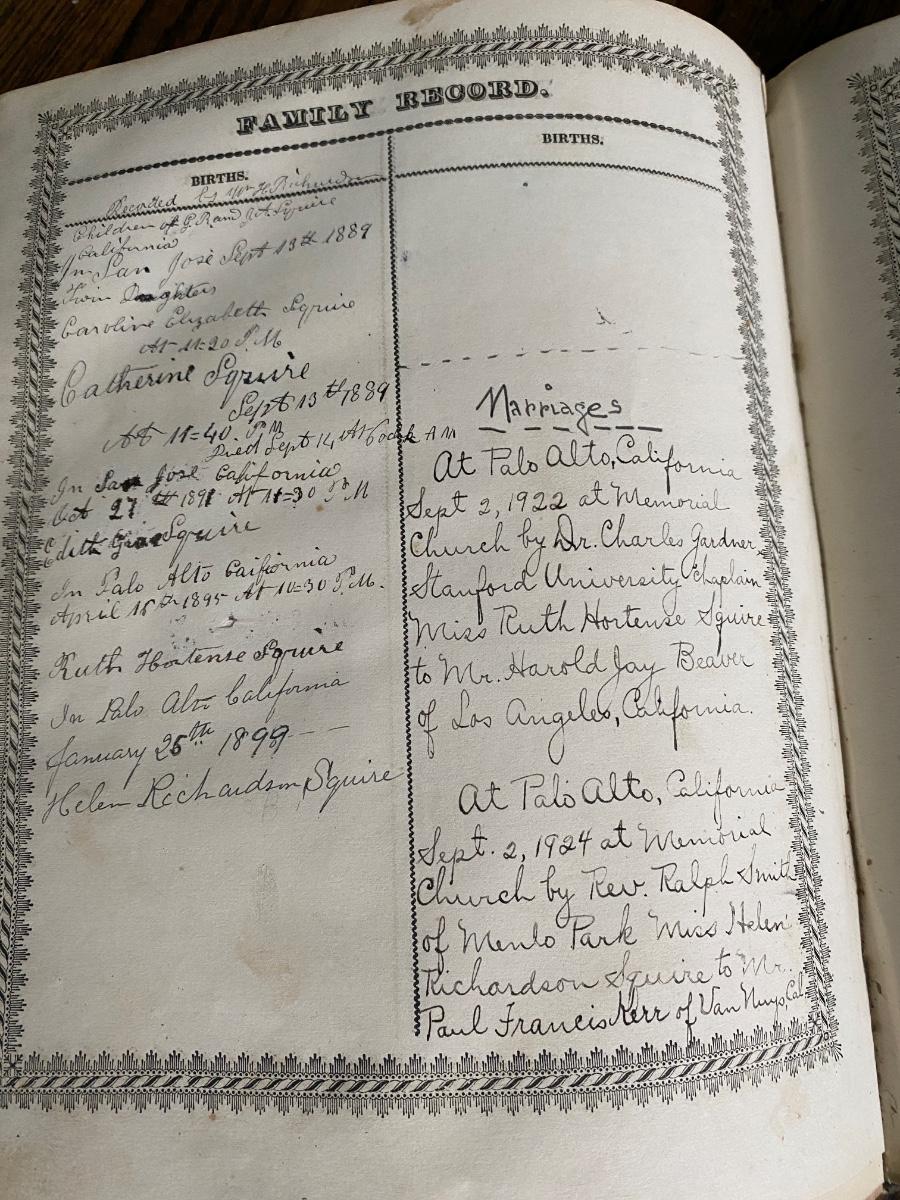 FAMILY RECORD.
BIRTHS.
Recorded by Wm H. Richardson
Children of G. R. and J. A. Squire
California
In San José Sept 13th 1889
Twin Daughters
Caroline Elizabeth Squire
At 11=20 P.M
Catherine Squire
Sept 13th 1889
At 11=40 P.M
Died Sept 14, At 6 oclk A M
In San José California
Oct 27th 1891 At 11=30 P.M
Edith Squire
In Palo Alto California
April 1895 At 11=30 P.M.
Ruth Hortense Squire
In Palo Alto California
January 25th 1899
Helen Richardson Squire
BIRTHS.
Marriages
At Palo Alto, California
Sept 2, 1922 at Memorial
Church by Dr. Charles Gardner,
Stanford University Chaplain
Miss Ruth Hortense Squire
to Mr. Harold Jay Beaver
of Los Angeles, California.
At Palo Alto, California
Sept. 2, 1924 at Memorial
Church by Rev. Ralph Smith
of Menlo Park Miss Helen
Richardson Squire to Mr.
Paul Francis Kerr of Van Nuys, Cal